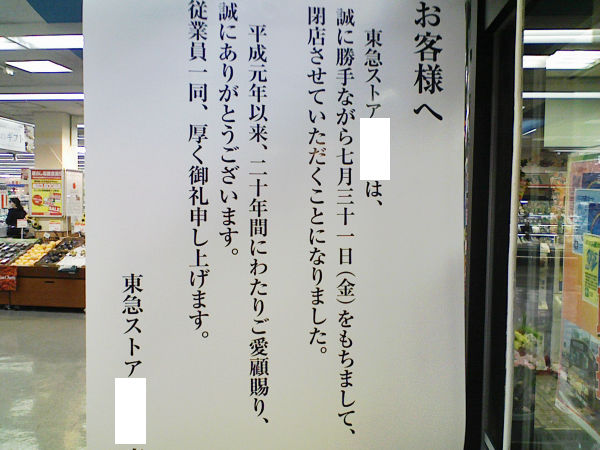 お客様へ
東急ストア
は、
誠に勝手ながら七月三十一日(金)をもちまして、
閉店させていただくことになりました。
平成元年以来、二十年間にわたりご愛顧賜り、
誠にありがとうございます。
従業員一同、厚く御礼申し上げます。
東急ストア